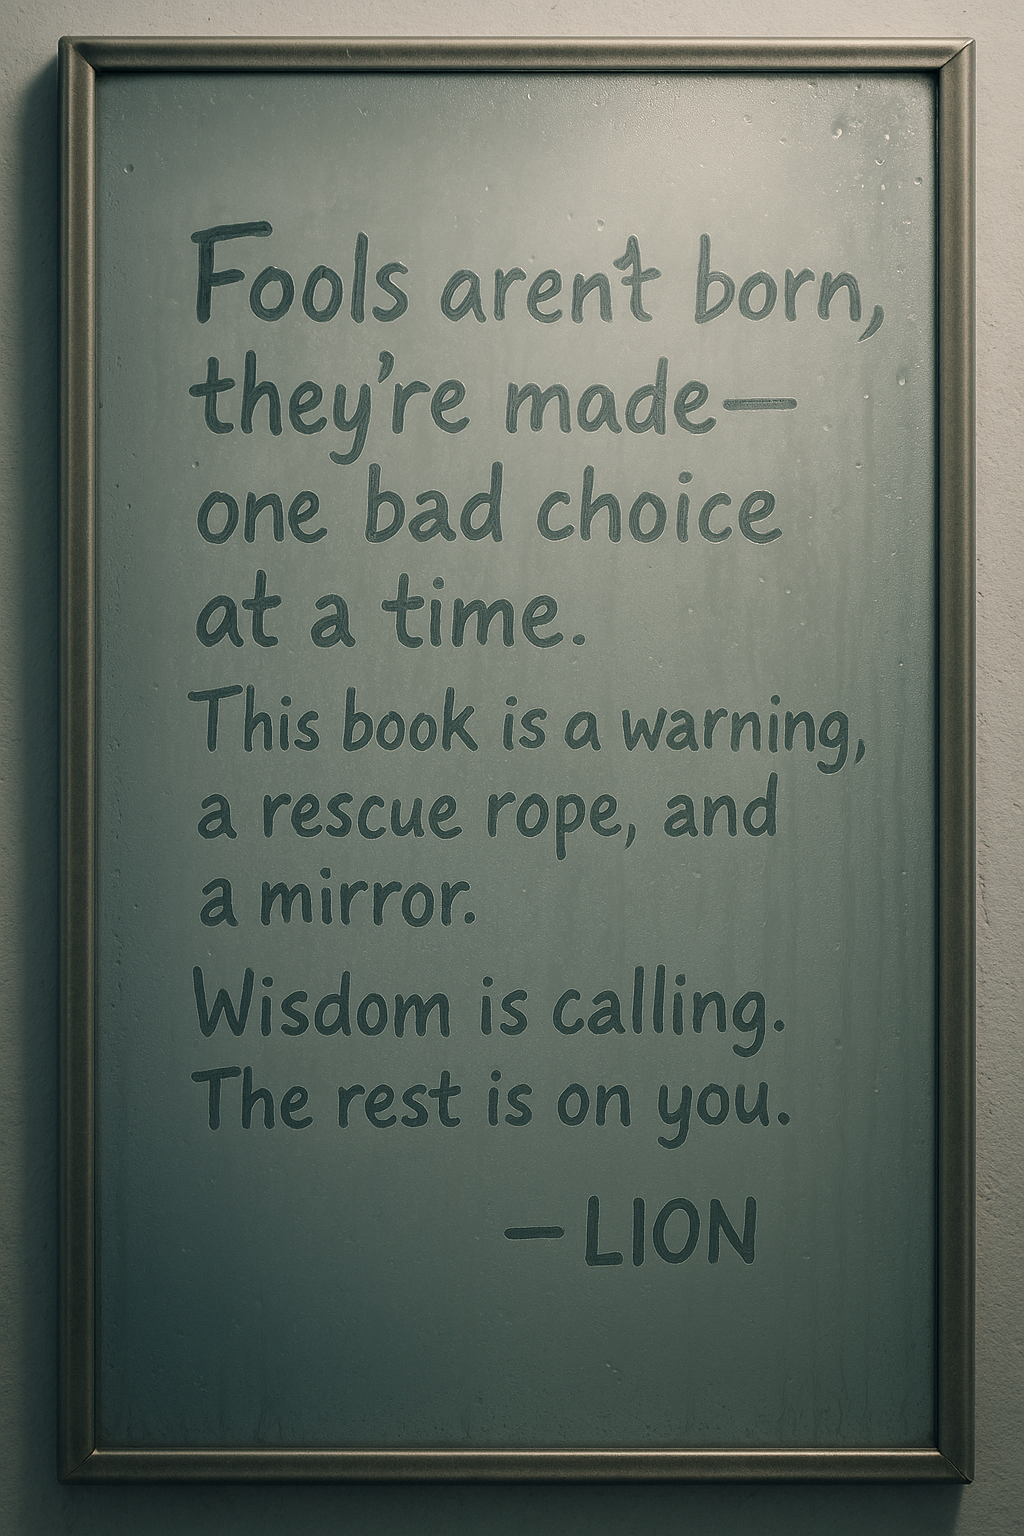 Fools aren't born,
they're made—
one bad choice
at a time.
This book is a warning,
a rescue rope, and
a mirror.
Wisdom is calling.
The rest is on you.
—LION